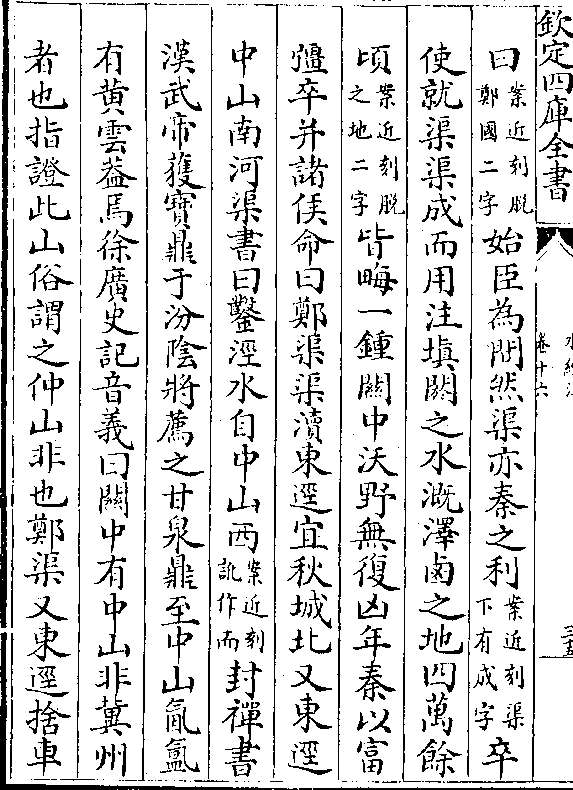 欽定四庫全書
水經注
卷十六
三五
曰案近刻脱鄭國二字始臣為間然渠亦秦之利案近刻渠下有成字卒
使就渠渠成而用注填閼之水溉澤鹵之地四萬餘
頃案近刻脱之地二字皆畮一鍾闗中沃野無復凶年秦以富
彊卒并諸侯命曰鄭渠渠瀆東逕宜秋城北又東逕
中山南河渠書曰鑿涇水自中山西案近刻訛作而封禪書
漢武帝獲寳鼎于汾陰將薦之甘泉鼎至中山氤氲
有黄雲葢焉徐廣史記音義曰闗中有中山非冀州
者也指證此山俗謂之仲山非也鄭渠又東逕捨車